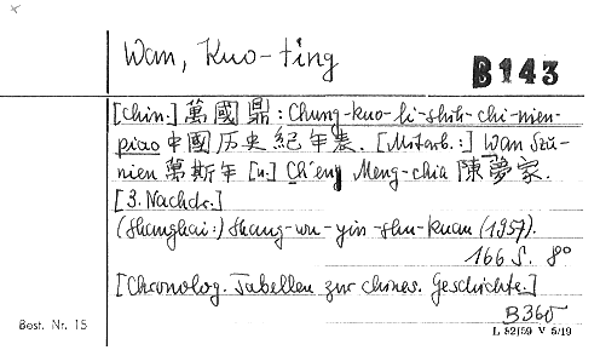 Wan, Kuo-ting
B143
[chin.] 萬國鼎: Chung-kuo-li-shih-chi-nien-
piao 中國历史紀年表. [Mitarb.:] Wan Szŭ-
nien 萬斯年 [u.] Ch'eng Meng-chia 陳夢家.
[3. Nachdr.]
(Shanghai:) Shang-wu-yin-shu-kuan (1957).
166 S. 8°
[Chronolog. Tabellen zur chines. Geschichte.]
B360
Best. Nr. 15
L 52/59 V 5/19